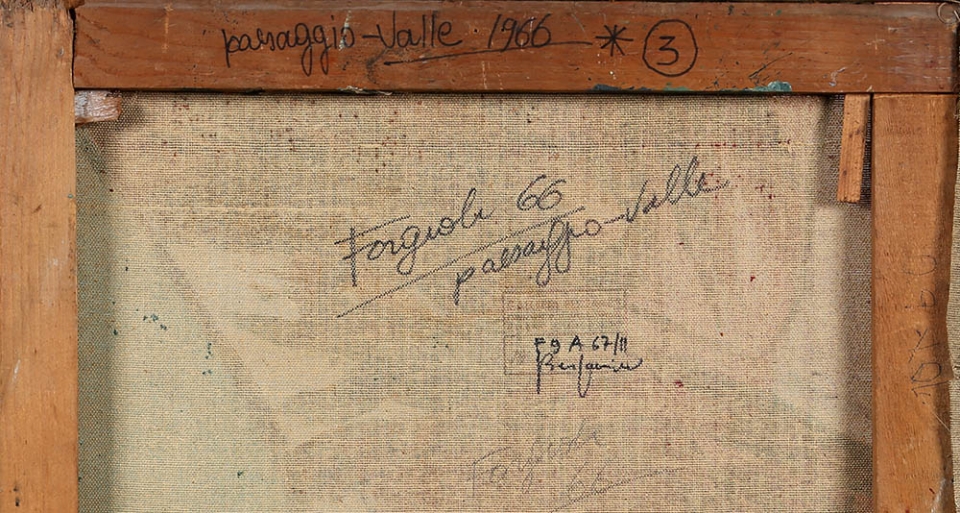 paesaggio-Valle 1966 * 3
Forgioli 66
paesaggio-Valle
F 9 A 67/11
Forgioli
66